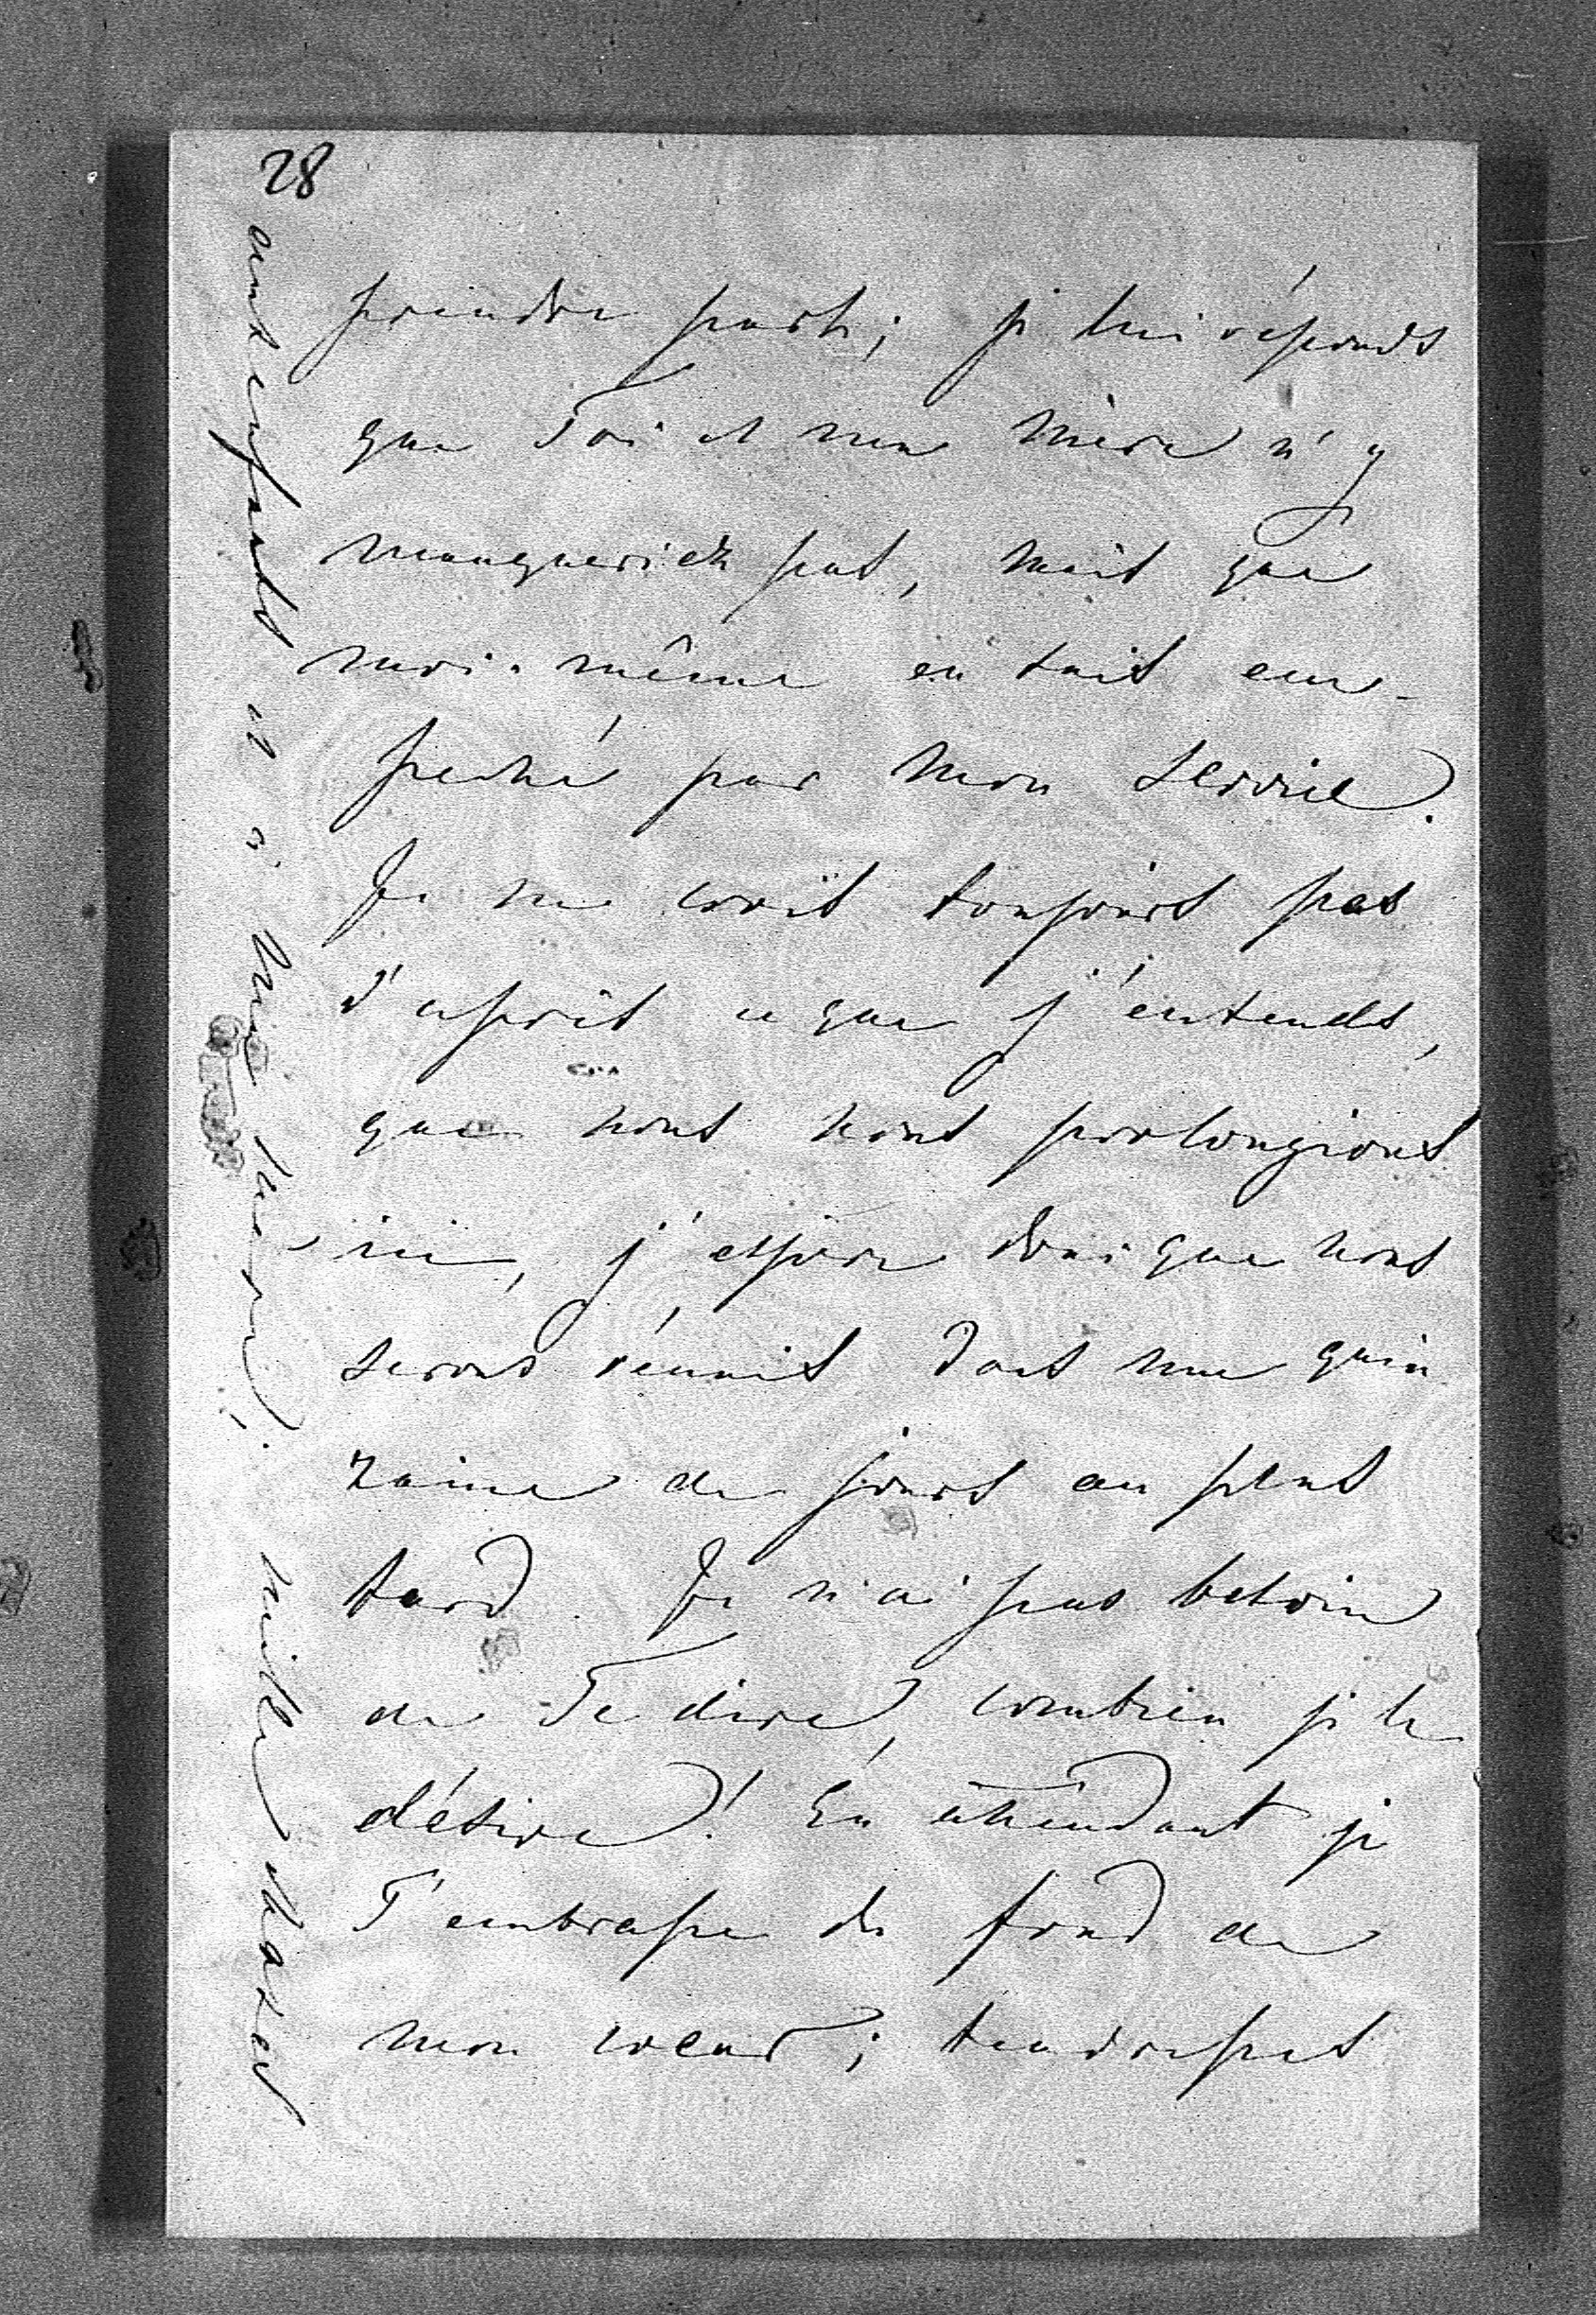 28
prendre part; je lui réponds
que Toi et ma mère n'y
manqueriez pas, mais que
moi-même en suis em-
peché par mon service.
Je ne crois toujours pas
d'après ce que j'entends,
que nous nous prolongions
ici, j'espère donc que nous
serons réunis dans une quin
zaine de jours au plus
tard. Je n'ai pas besoin
de Te dire, combien je le
désire! En attendant je
T'embrasse du fond de
mon coeur; tendresses
aux enfants et à ma mère.